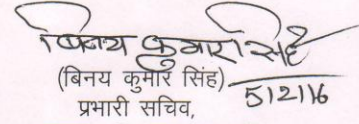 बिनय कुमार सिंह
(बिनय कुमार सिंह)
5/2/16
प्रभारी सचिव,